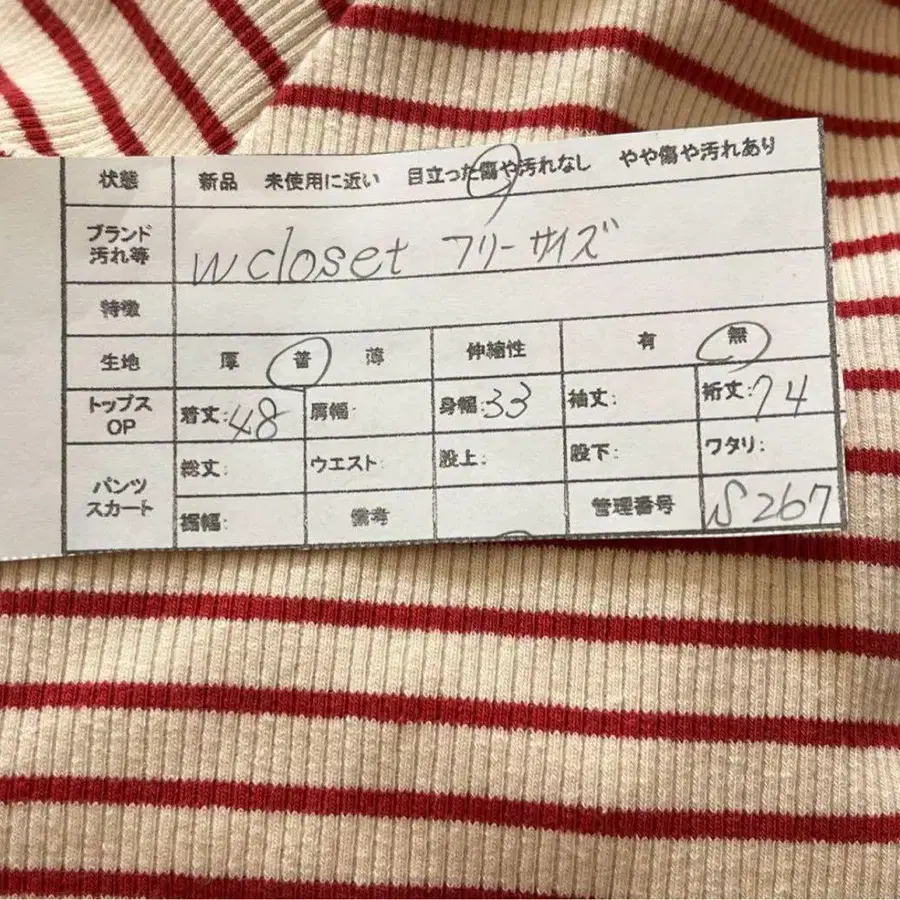 状態 新品 未使用に近い 目立った傷や汚れなし やや傷や汚れあり
ブランド
汚れ等
w closet フリーサイズ
特徴
生地 厚 普 薄 伸縮性 有 無
トップス
OP
着丈:48 肩幅: 身幅:33 袖丈: 裄丈:74
パンツ
スカート
総丈: ウエスト: 股上: 股下: ワタリ:
裾幅: 備考 管理番号 S267